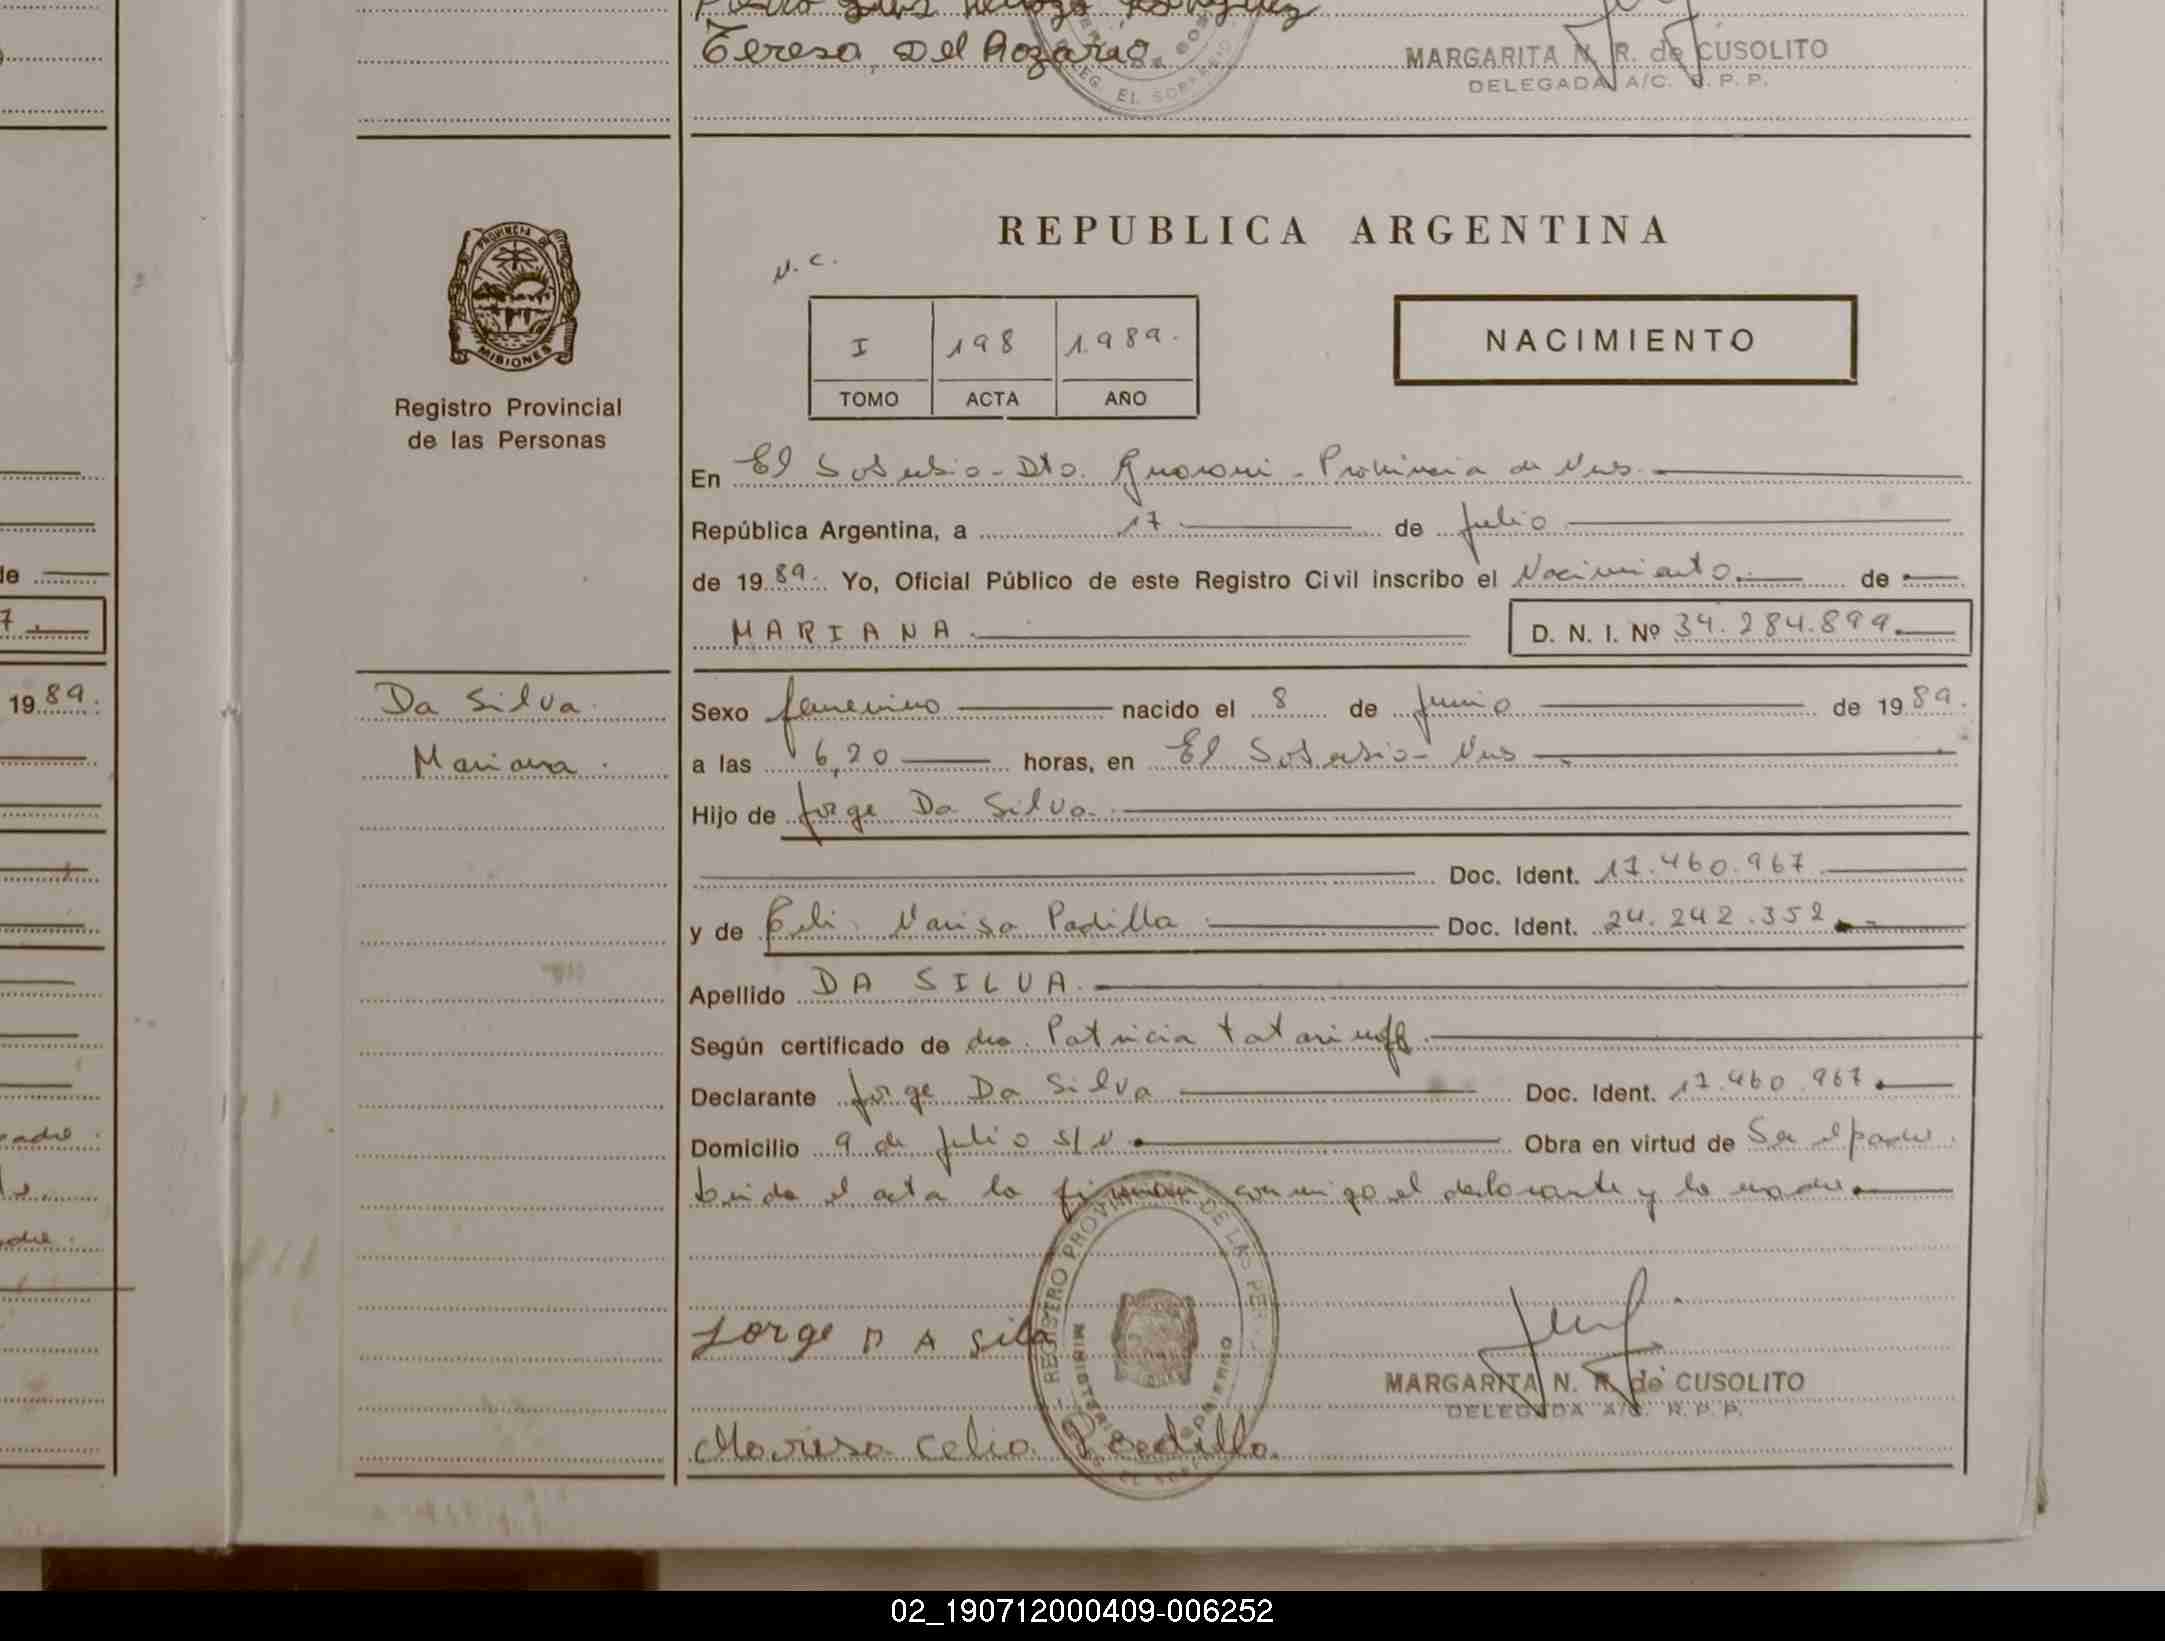 Teresa Del Rozario
MARGARITA N. R. de CUSOLITO
DELEGADA A/C. R. P. P.
DELEG. EL SOBERBIO
PROVINCIA DE
MISIONES
Registro Provincial
de las Personas
REPUBLICA ARGENTINA
N. C.
I 198 1.989.
TOMO ACTA AÑO
NACIMIENTO
En El Soberbio - Dto. Guarani - Provincia de Mns.
República Argentina, a 17 de Julio
de 1989. Yo, Oficial Público de este Registro Civil inscribo el Nacimiento. de
MARIANA. D. N. I. Nº 34.284.899.
Da Silva.
Mariana.
Sexo femenino nacido el 8 de Junio de 1989.
a las 6,20 horas, en El Soberbio - Mns
Hijo de Jorge Da Silva.
Doc. Ident. 17.460.967
y de Celi. Marisa Padilla Doc. Ident. 24.242.352
Apellido DA SILVA.
Según certificado de dra. Patricia Tatarinoff
Declarante Jorge Da Silva Doc. Ident. 17.460.967
Domicilio 9 de Julio s/N Obra en virtud de Ser el padre.
Leida el acta la firman conmigo el declarante y la madre
REGISTRO PROVINCIAL DE LAS PER
MINISTERIO GOBIERNO
Jorge DA Sila
MARGARITA N. R. de CUSOLITO
DELEGADA A/C. R. P. P.
Marisa Celia Padilla.
de
7
1989.
02_190712000409-006252